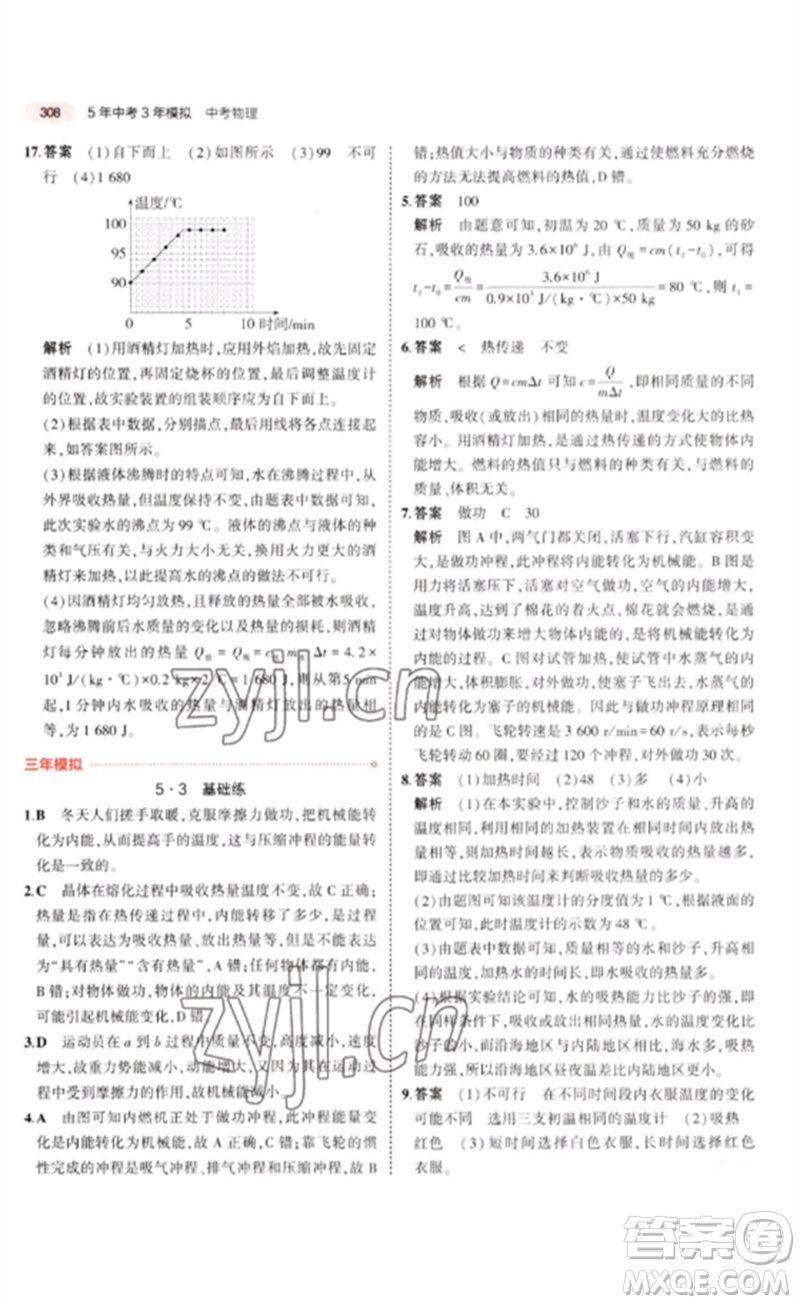 308 5年中考3年模拟 中考物理
17.答案 (1)自下而上 (2)如图所示 (3)99 不可
行 (4)1 680
温度/℃
100
95
90
0 5 10 时间/min
解析 (1)用酒精灯加热时,应用外焰加热,故先固定
酒精灯的位置,再固定烧杯的位置,最后调整温度计
的位置,故实验装置的组装顺序应为自下而上。
(2)根据表中数据,分别描点,最后用线将各点连接起
来,如答案图所示。
(3)根据液体沸腾时的特点可知,水在沸腾过程中,从
外界吸收热量,但温度保持不变,由题表中数据可知,
此次实验水的沸点为 99 ℃。液体的沸点与液体的种
类和气压有关,与火力大小无关,换用火力更大的酒
精灯来加热,以此提高水的沸点的做法不可行。
(4)因酒精灯均匀放热,且释放的热量全部被水吸收,
忽略沸腾前后水质量的变化以及热量的损耗,则酒精
灯每分钟放出的热量 Q放=Q吸=c水m水Δt=4.2×
10³ J/(kg·℃)×0.2 kg×2 ℃=1 680 J,则从第5 min
起,1分钟内水吸收的热量与酒精灯放出的热量相
等,为1 680 J。
三年模拟
5·3 基础练
1.B 冬天人们搓手取暖,克服摩擦力做功,把机械能转
化为内能,从而提高手的温度,这与压缩冲程的能量转
化是一致的。
2.C 晶体在熔化过程中吸收热量温度不变,故 C 正确;
热量是指在热传递过程中,内能转移了多少,是过程
量,可以说吸收热量、放出热量等,不能用状态量的表
述“具有热量”“含有热量”,A 错;任何物体都有内能,
B 错;对物体做功,物体的机械能不一定变化,
可能引起机械能变化,D 错。
3.D 运动员在 a 到 b 过程中质量不变,高度减小,速度
增大,故重力势能减小,动能增大;又因为其运动过程
中受到摩擦力的作用,故机械能变小,内能增大。
4.A 由图可知内燃机正处于做功冲程,此冲程能量变
化是内能转化为机械能,A 对,C 错;靠飞轮的惯
性完成的冲程是吸气冲程、排气冲程和压缩冲程,故 B
错;热值大小与物质的种类有关,通过使燃料充分燃烧
的方法无法提高燃料的热值,D 错。
5.答案 100
解析 由题意可知,初温为 20 ℃,质量为 50 kg 的砂
石,吸收的热量为 3.6×10⁶ J,由 Q吸=cm(t₁-t₀),可得
t₁-t₀=Q吸/cm=3.6×10⁶ J/(0.9×10³ J/(kg·℃)×50 kg)=80 ℃,则 t₁=
100 ℃。
6.答案 < 热传递 不变
解析 根据 Q=cmΔt 可知 c=Q/(mΔt),相同质量的不同
物质,吸收(或放出)相同的热量时,温度变化大的比热
容小。用酒精灯加热,是通过热传递的方式使物体内
能增大。燃料的热值只与燃料的种类有关,与燃料的
质量、体积无关。
7.答案 做功 C 30
解析 图 A 中,两气门都关闭,活塞下行,汽缸容积变
大,是做功冲程,此冲程将内能转化为机械能。B 图是
用力将活塞压下,活塞对空气做功,空气的内能增大,
温度升高,达到了棉花的着火点,棉花就会燃烧,是通
过对物体做功来增大物体内能的,是将机械能转化为
内能的过程。C 图对试管加热,使试管中水蒸气的内
能增大,体积膨胀,对外做功,使塞子飞出去,水蒸气的
内能转化为塞子的机械能。故与做功冲程原理相同
的是 C 图。飞轮转速是 3 600 r/min=60 r/s,表示每
秒飞轮转动 60 圈,要经过 120 个冲程,对外做功 30 次。
8.答案 (1)加热时间 (2)48 (3)多 (4)小
解析 (1)在本实验中,控制沙子和水的质量、升高的
温度相同,利用相同的加热装置在相同时间内放出热
量相同,时间越长,表示物质吸收的热量越多,故实验
中是用加热时间的长短来判断吸收热量多少的。
(2)由题图可知该温度计的分度值为 1 ℃,根据液面的
位置可知,此时温度计的示数为 48 ℃。
(3)由题表中数据可知,质量相等的水和沙子,升高相
同的温度,加热水的时间长,即水吸收的热量多。
(4)根据实验结论可知,水的吸热能力比沙子的强,即
在同样条件下,吸收或放出相同的热量,水的温度变化
比沙子的小,而沿海地区与内陆地区相比有更多的水,
所以沿海地区昼夜温差比内陆地区更小。
9.答案 (1)不可行 在不同时间段内衣服温度的变化
可能不同 选用三支初温相同的温度计 (2)吸热
红色 (3)短时间选择白色衣服,长时间选择红色
衣服。
zyjl.cn
zyjl.cn
答案圈
MXQE.COM